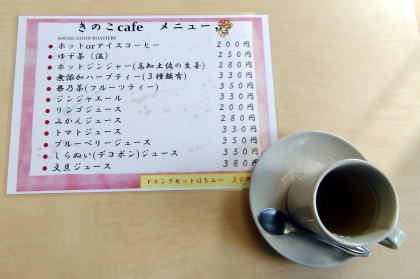 きのこcafe メニュー
SOCIAL GOOD ROASTERS
●ホットorアイスコーヒー 200円
●ゆず茶(温) 250円
●ホットジンジャー(高知土佐の生姜) 280円
●無添加ハーブティー(3種類有) 330円
●果乃茶(フルーツティー) 350円
●ジンジャエール 330円
●リンゴジュース 200円
●みかんジュース 280円
●トマトジュース 330円
●ブルーベリージュース 350円
●しらぬい(デコポン)ジュース 350円
●文旦ジュース 380円
ドリンクセットは